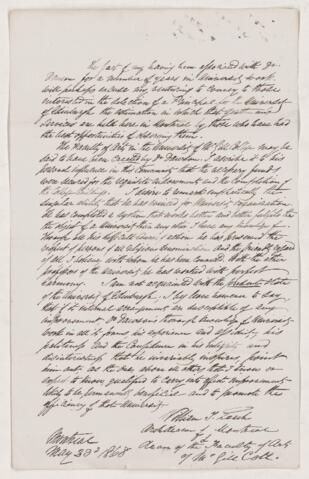 The fact of my having been associated with Dr.
Dawson for a number of years in University work
will perhaps excuse my venturing to convey to those
interested in the selection of a Principal for the University
of Edinburgh the estimation in which that gentleman's
services are held here in Montreal by those who have had
the best opportunities of observing them.
The Faculty of Arts in the University of McGill College may be
said to have been created by Dr. Dawson. I ascribe it to his
personal influence in this Community that the necessary funds
were secured for the requisite endowment and the completion of
the College Buildings. I desire to remark emphatically the
singular ability that he has evinced for University organization
He has completed a system that works better and better fulfils the
the objects of a University than any other I have any knowledge
Through all his difficult career of action he has preserved the
respect of persons of all religious denominations and the friendly regard
of all I believe with whom he has been connected. With the other
professors of the University he has worked with perfect
harmony. I am not acquainted with the present State
of the University of Edinburgh. I beg leave however to say
that if its internal arrangements are susceptible of any
improvement Dr. Dawson's thorough knowledge of University
work in all its forms his experience and ability, his
politeness and the confidence in his integrity and
disinterestedness that he invariably inspires point
him out as the one above all others that I know or
of more qualified to carry into effect improvements
likely to be permanently beneficial and to promote the
efficiency of that University.
William T. Leach
Archdeacon of Montreal
&
Dean of the Faculty of Arts
of McGill Coll.
Montreal
May 23d 1868